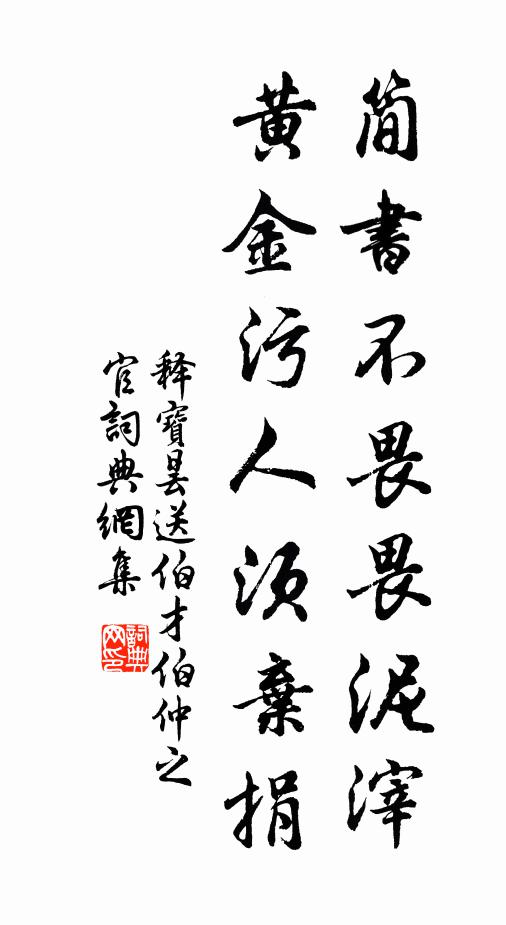 简書不畏畏泥滓
黄金污人須棄捐
释寶曇送伯才伯仲之
官詞典網集
詞典網印